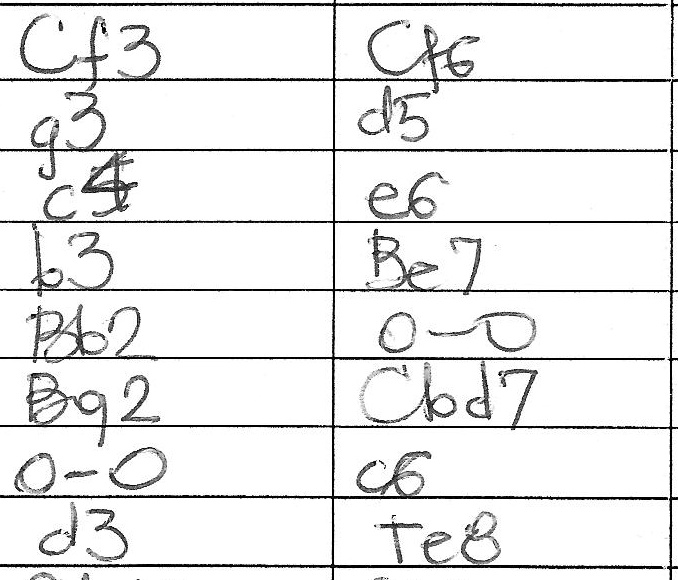 Cf3 Cf6
g3 d5
c4 e6
b3 Be7
Bb2 0-0
Bg2 Cbd7
0-0 c6
d3 Te8